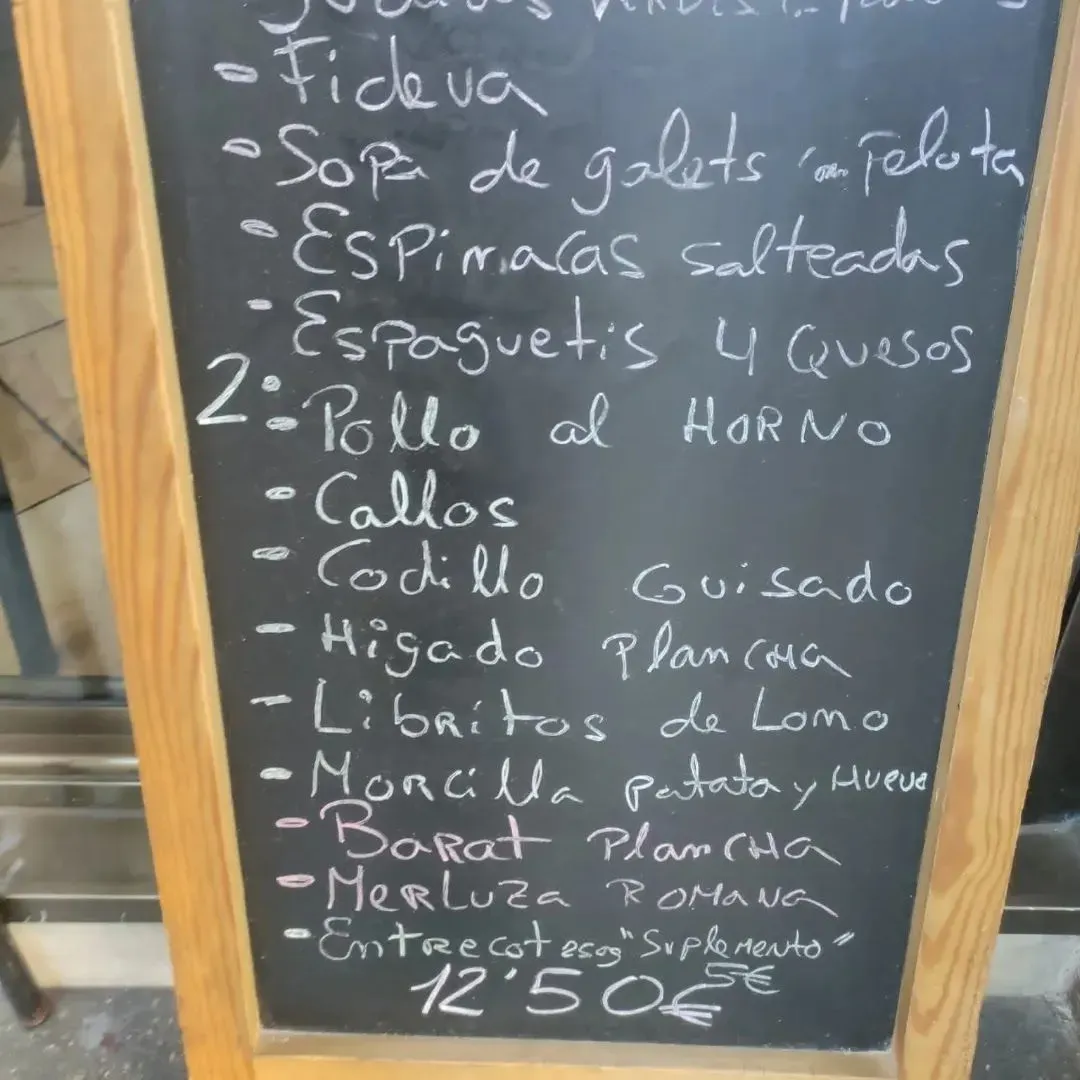 - Fideua
- Sopa de galets con Pelota
- Espinacas salteadas
- Espaguetis 4 Quesos
2º
- Pollo al HORNO
- Callos
- Codillo Guisado
- Higado Plancha
- Libritos de Lomo
- Morcilla patata y Huevo
- Barat Plancha
- Merluza Romana
- Entrecot 250g "Suplemento"
5€
12'50€